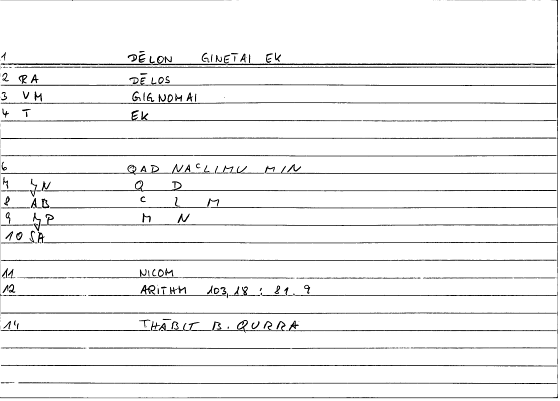 1 DĒLON GINETAI EK
2 RA DĒLOS
3 VM GIGNOMAI
4 T EK
6 QAD NAᶜLIMU MIN
7 N Q D
8 AB ᶜ L M
9 P M N
10 SA
11 NICOM
12 ARITHM 103,18 : 81.9
14 THĀBIT B. QURRA